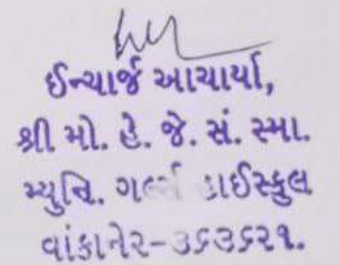 ઈન્ચાર્જ આચાર્યા,
શ્રી મો. હે. જે. સં. સ્મા.
મ્યુનિ. ગર્લ્સ હાઈસ્કુલ
વાંકાનેર-૩૬૩૬૨૧.